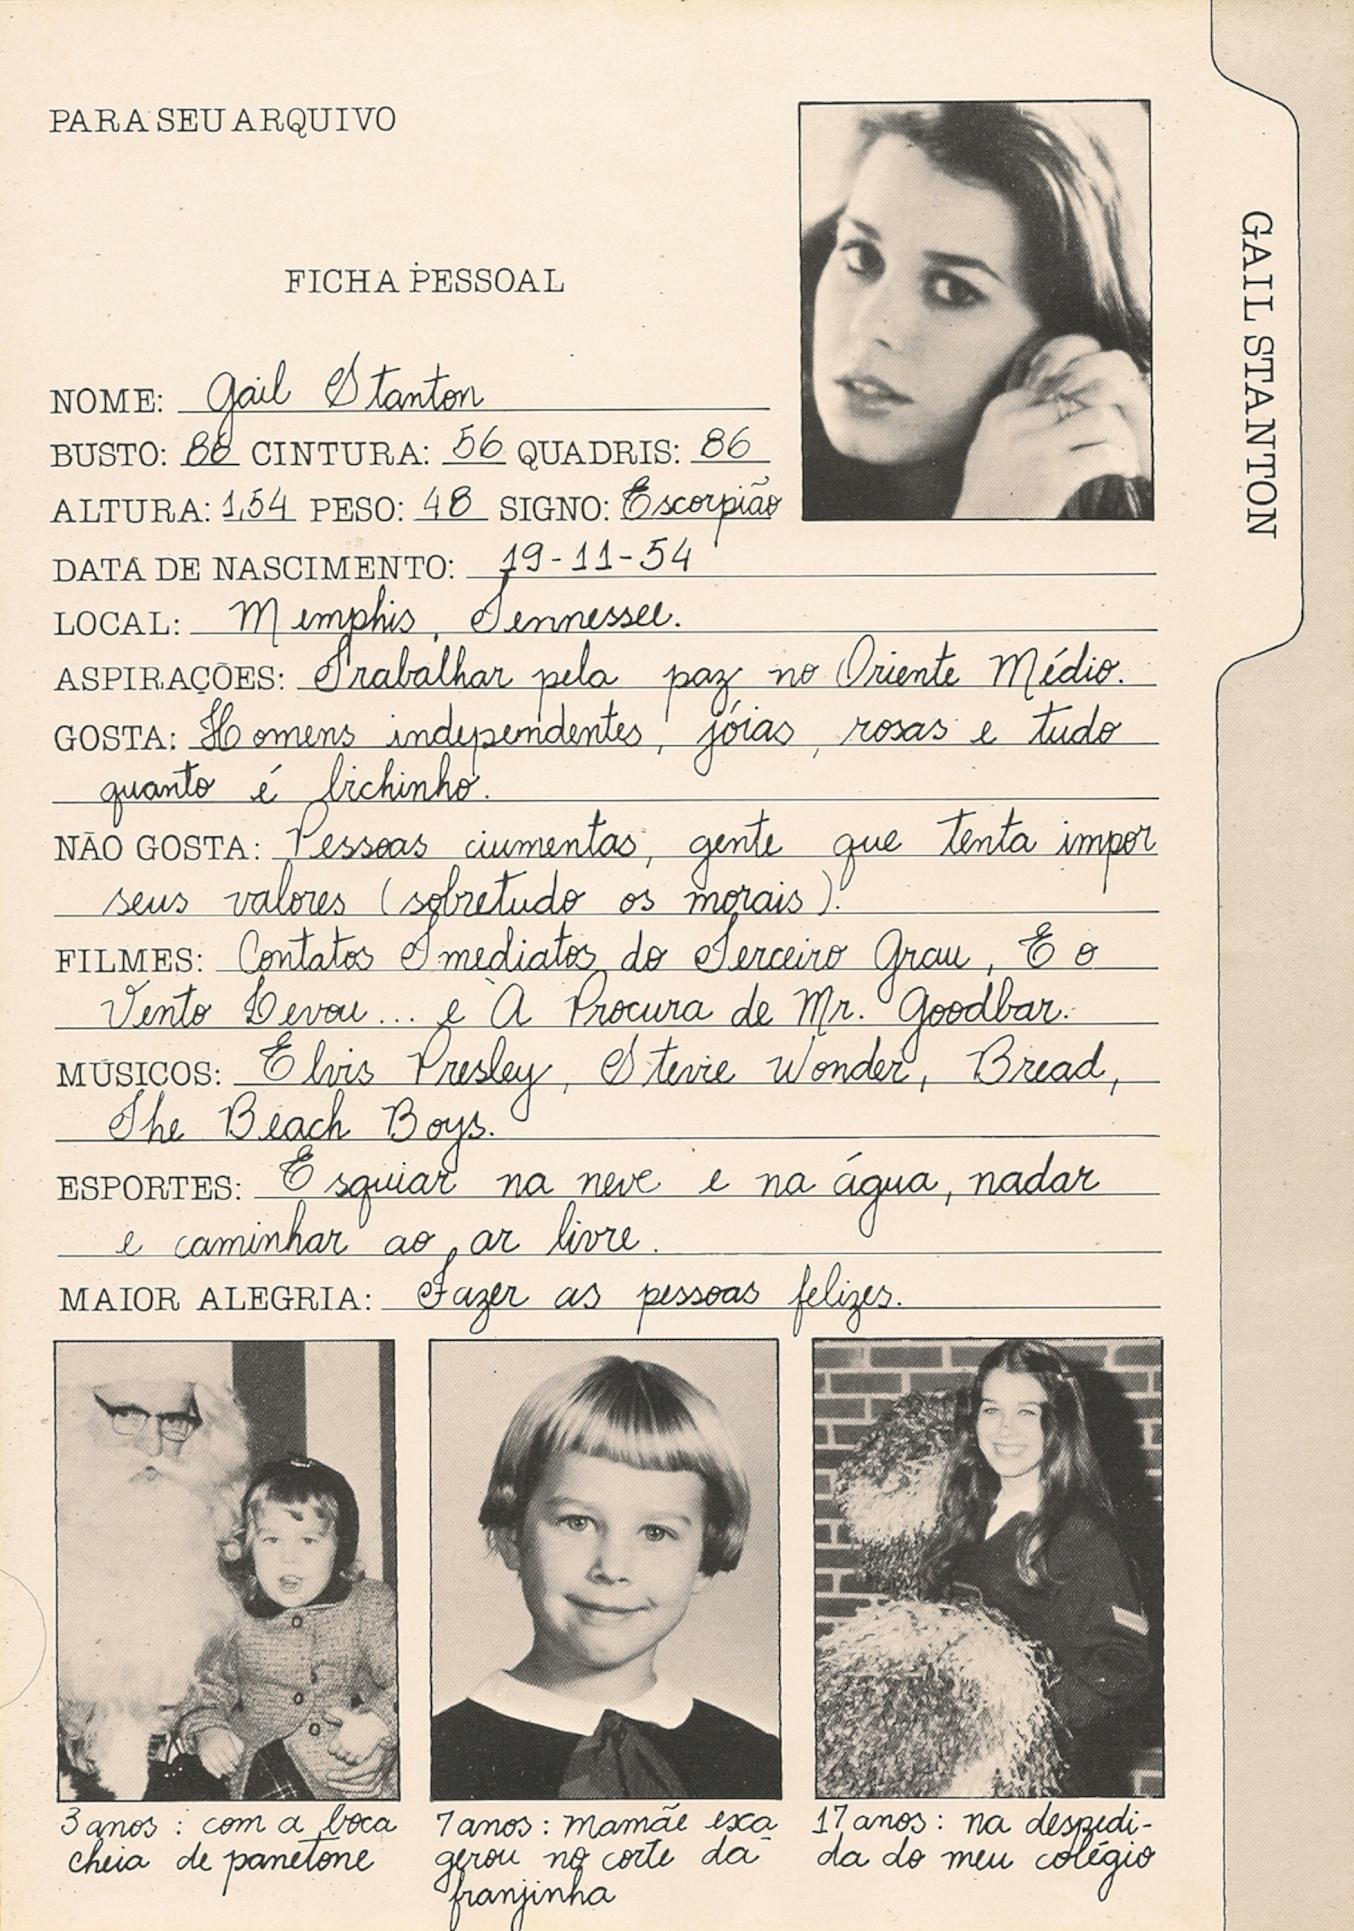 PARA SEU ARQUIVO
FICHA PESSOAL
NOME: Gail Stanton
BUSTO: 88 CINTURA: 56 QUADRIS: 86
ALTURA: 1,54 PESO: 48 SIGNO: Escorpião
DATA DE NASCIMENTO: 19-11-54
LOCAL: Memphis, Tennessee.
ASPIRAÇÕES: Trabalhar pela paz no Oriente Médio.
GOSTA: Homens independentes, jóias, rosas e tudo
quanto é bichinho.
NÃO GOSTA: Pessoas ciumentas, gente que tenta impor
seus valores (sobretudo os morais).
FILMES: Contatos Imediatos do Terceiro Grau, E o
Vento Levou... e À Procura de Mr. Goodbar.
MÚSICOS: Elvis Presley, Stevie Wonder, Bread,
The Beach Boys.
ESPORTES: Esquiar na neve e na água, nadar
e caminhar ao ar livre.
MAIOR ALEGRIA: Fazer as pessoas felizes.
3 anos: com a boca
cheia de panetone
7 anos: mamãe exa
gerou no corte da
franjinha
17 anos: na despedi-
da do meu colégio
GAIL STANTON